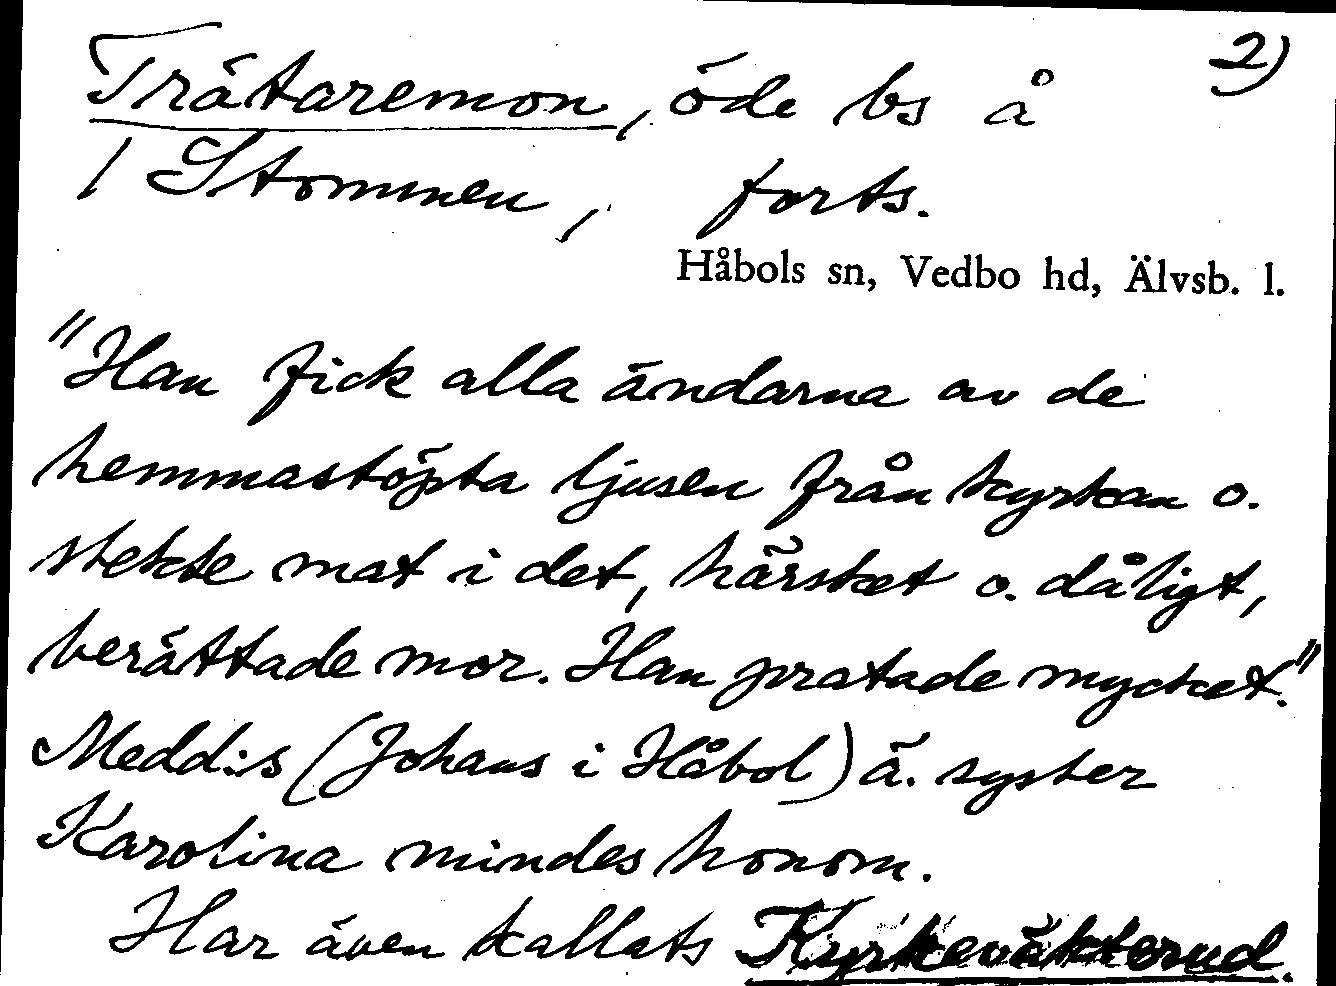 Trätaremon, öde bs å 2)
1 Stommen, forts.
Håbols sn, Vedbo hd, Älvsb. l.
"Han fick alla ändarna av de
hemmastöpta ljusen från kyrkan o.
stekte mat i det, härsket o. dåligt,
berättade mor. Han pratade mycket."
Medd:s (Johans i Håbol) ä. syster
Karolina mindes honom.
Har även kallats Kyrkeväkterud.